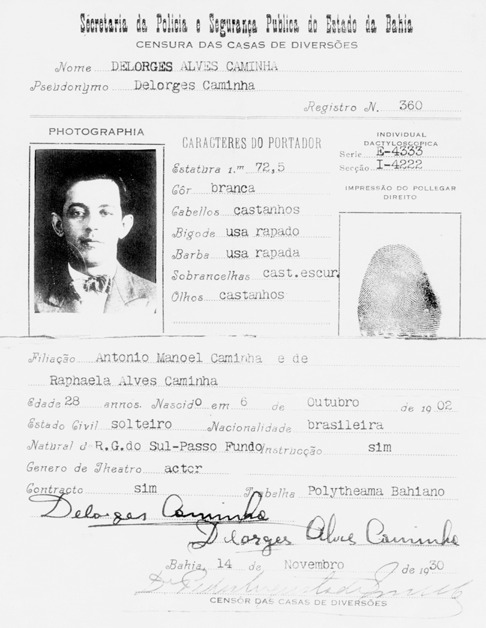 Secretaria da Policia e Segurança Publica do Estado da Bahia
CENSURA DAS CASAS DE DIVERSÕES
Nome DELORGES ALVES CAMINHA
Pseudonymo Delorges Caminha
Registro N. 360
PHOTOGRAPHIA
CARACTERES DO PORTADOR
Estatura 1.m 72,5
Côr branca
Cabellos castanhos
Bigode usa rapado
Barba usa rapada
Sobrancelhas cast.escur.
Olhos castanhos
INDIVIDUAL
DACTYLOSCOPICA
Serie E-4333
Secção I-4222
IMPRESSÃO DO POLLEGAR
DIREITO
Filiação Antonio Manoel Caminha e de
Raphaela Alves Caminha
Edade 28 annos. Nascido em 6 de Outubro de 1902
Estado Civil solteiro Nacionalidade brasileira
Natural d R.G.do Sul-Passo Fundo Instrucção sim
Genero de Theatro actor
Contracto sim Trabalha Polytheama Bahiano
Delorges Caminha
Delorges Alves Caminha
Bahia, 14 de Novembro de 1930
CENSÔR DAS CASAS DE DIVERSÕES